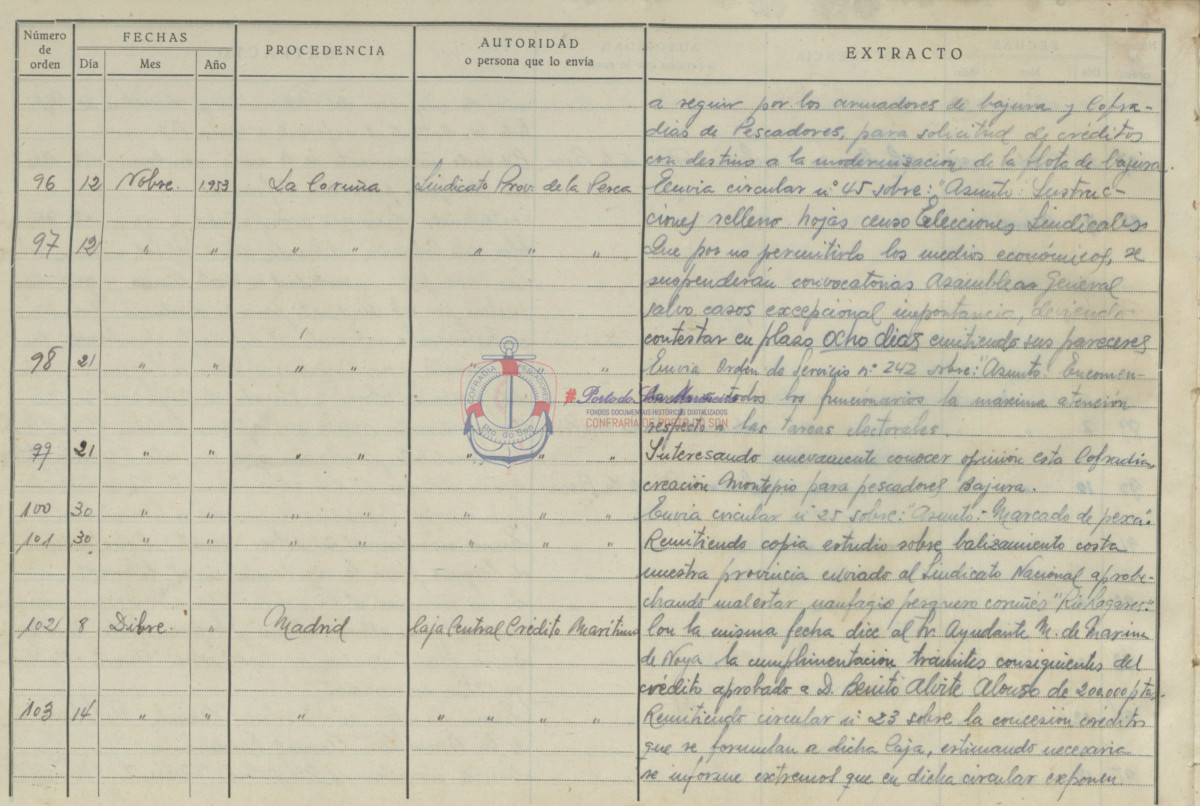 Número de orden FECHAS PROCEDENCIA AUTORIDAD o persona que lo envía EXTRACTO
Día Mes Año
a seguir por los armadores de bajura y Cofra-
dias de Pescadores, para solicitud de créditos
con destino a la modernización de la flota de bajura.
96 12 Nobre. 1.953 La Coruña Sindicato Prov. de la Pesca Envia circular nº 45 sobre: "Asunto: Instruc-
ciones relleno hojas censo Elecciones Sindicales
97 12 " " " " " " " Que por no permitirlo los medios económicos, se
suspenderán convocatorias Asambleas General
salvo casos excepcional importancia, deviendo
contestar en plazo ocho dias emitiendo sus pareceres
98 21 " " " " " " " Envia Orden de Servicio nº 242 sobre: "Asunto: Encomen-
todos los funcionarios la maxima atención
respecto a las tareas electorales.
99 21 " " " " " " " Interesando nuevamente conocer opinión esta Cofradia,
creación Montepio para pescadores Bajura.
100 30 " " " " " " " Envia circular nº 25 sobre: "Asunto:- Marcado de pesca".
101 30 " " " " " " " Remitiendo copia estudio sobre balizamiento costa
nuestra provincia enviado al Sindicato Nacional aprobe-
chando malestar naufagio pesquero coruñés
102 8 Dibre. " Madrid Caja Central Crédito Maritimo Con la misma fecha dice al Sr. Ayudante M. de Marina
de Noya la cumplimentación tramites consiguientes del
crédito aprobado a D. Benito Alvite Alonso de 200.000 ptas.
103 14 " " " " " " " Remitiendo circular nº 23 sobre la concesión créditos
que se formulan a dicha Caja, estimando necesaria
se informe extremos que en dicha circular exponen.
COFRADIA PESCADORES
Pto. do Son
#PortodoSonMariñeiro
FONDOS DOCUMENTAIS HISTÓRICOS DIXITALIZADOS
CONFRARÍA DE PORTO DO SON